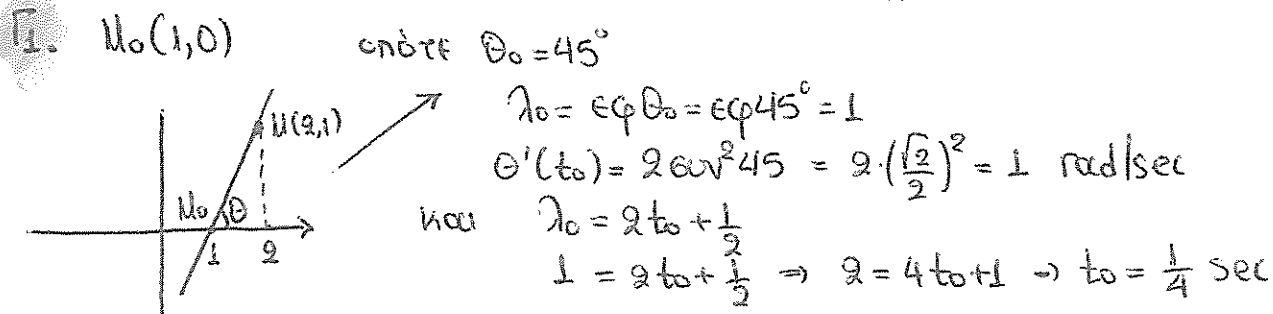 Γ1. M₀(1,0) οπότε θ₀ = 45°
λ₀ = εφθ₀ = εφ45° = 1
M(2,1)
θ'(t₀) = 2συν²45 = 2·(√2/2)² = 1 rad/sec
M₀ θ
και λ₀ = 2t₀ + 1/2
1 2
1 = 2t₀ + 1/2 ⇒ 2 = 4t₀+1 ⇒ t₀ = 1/4 sec